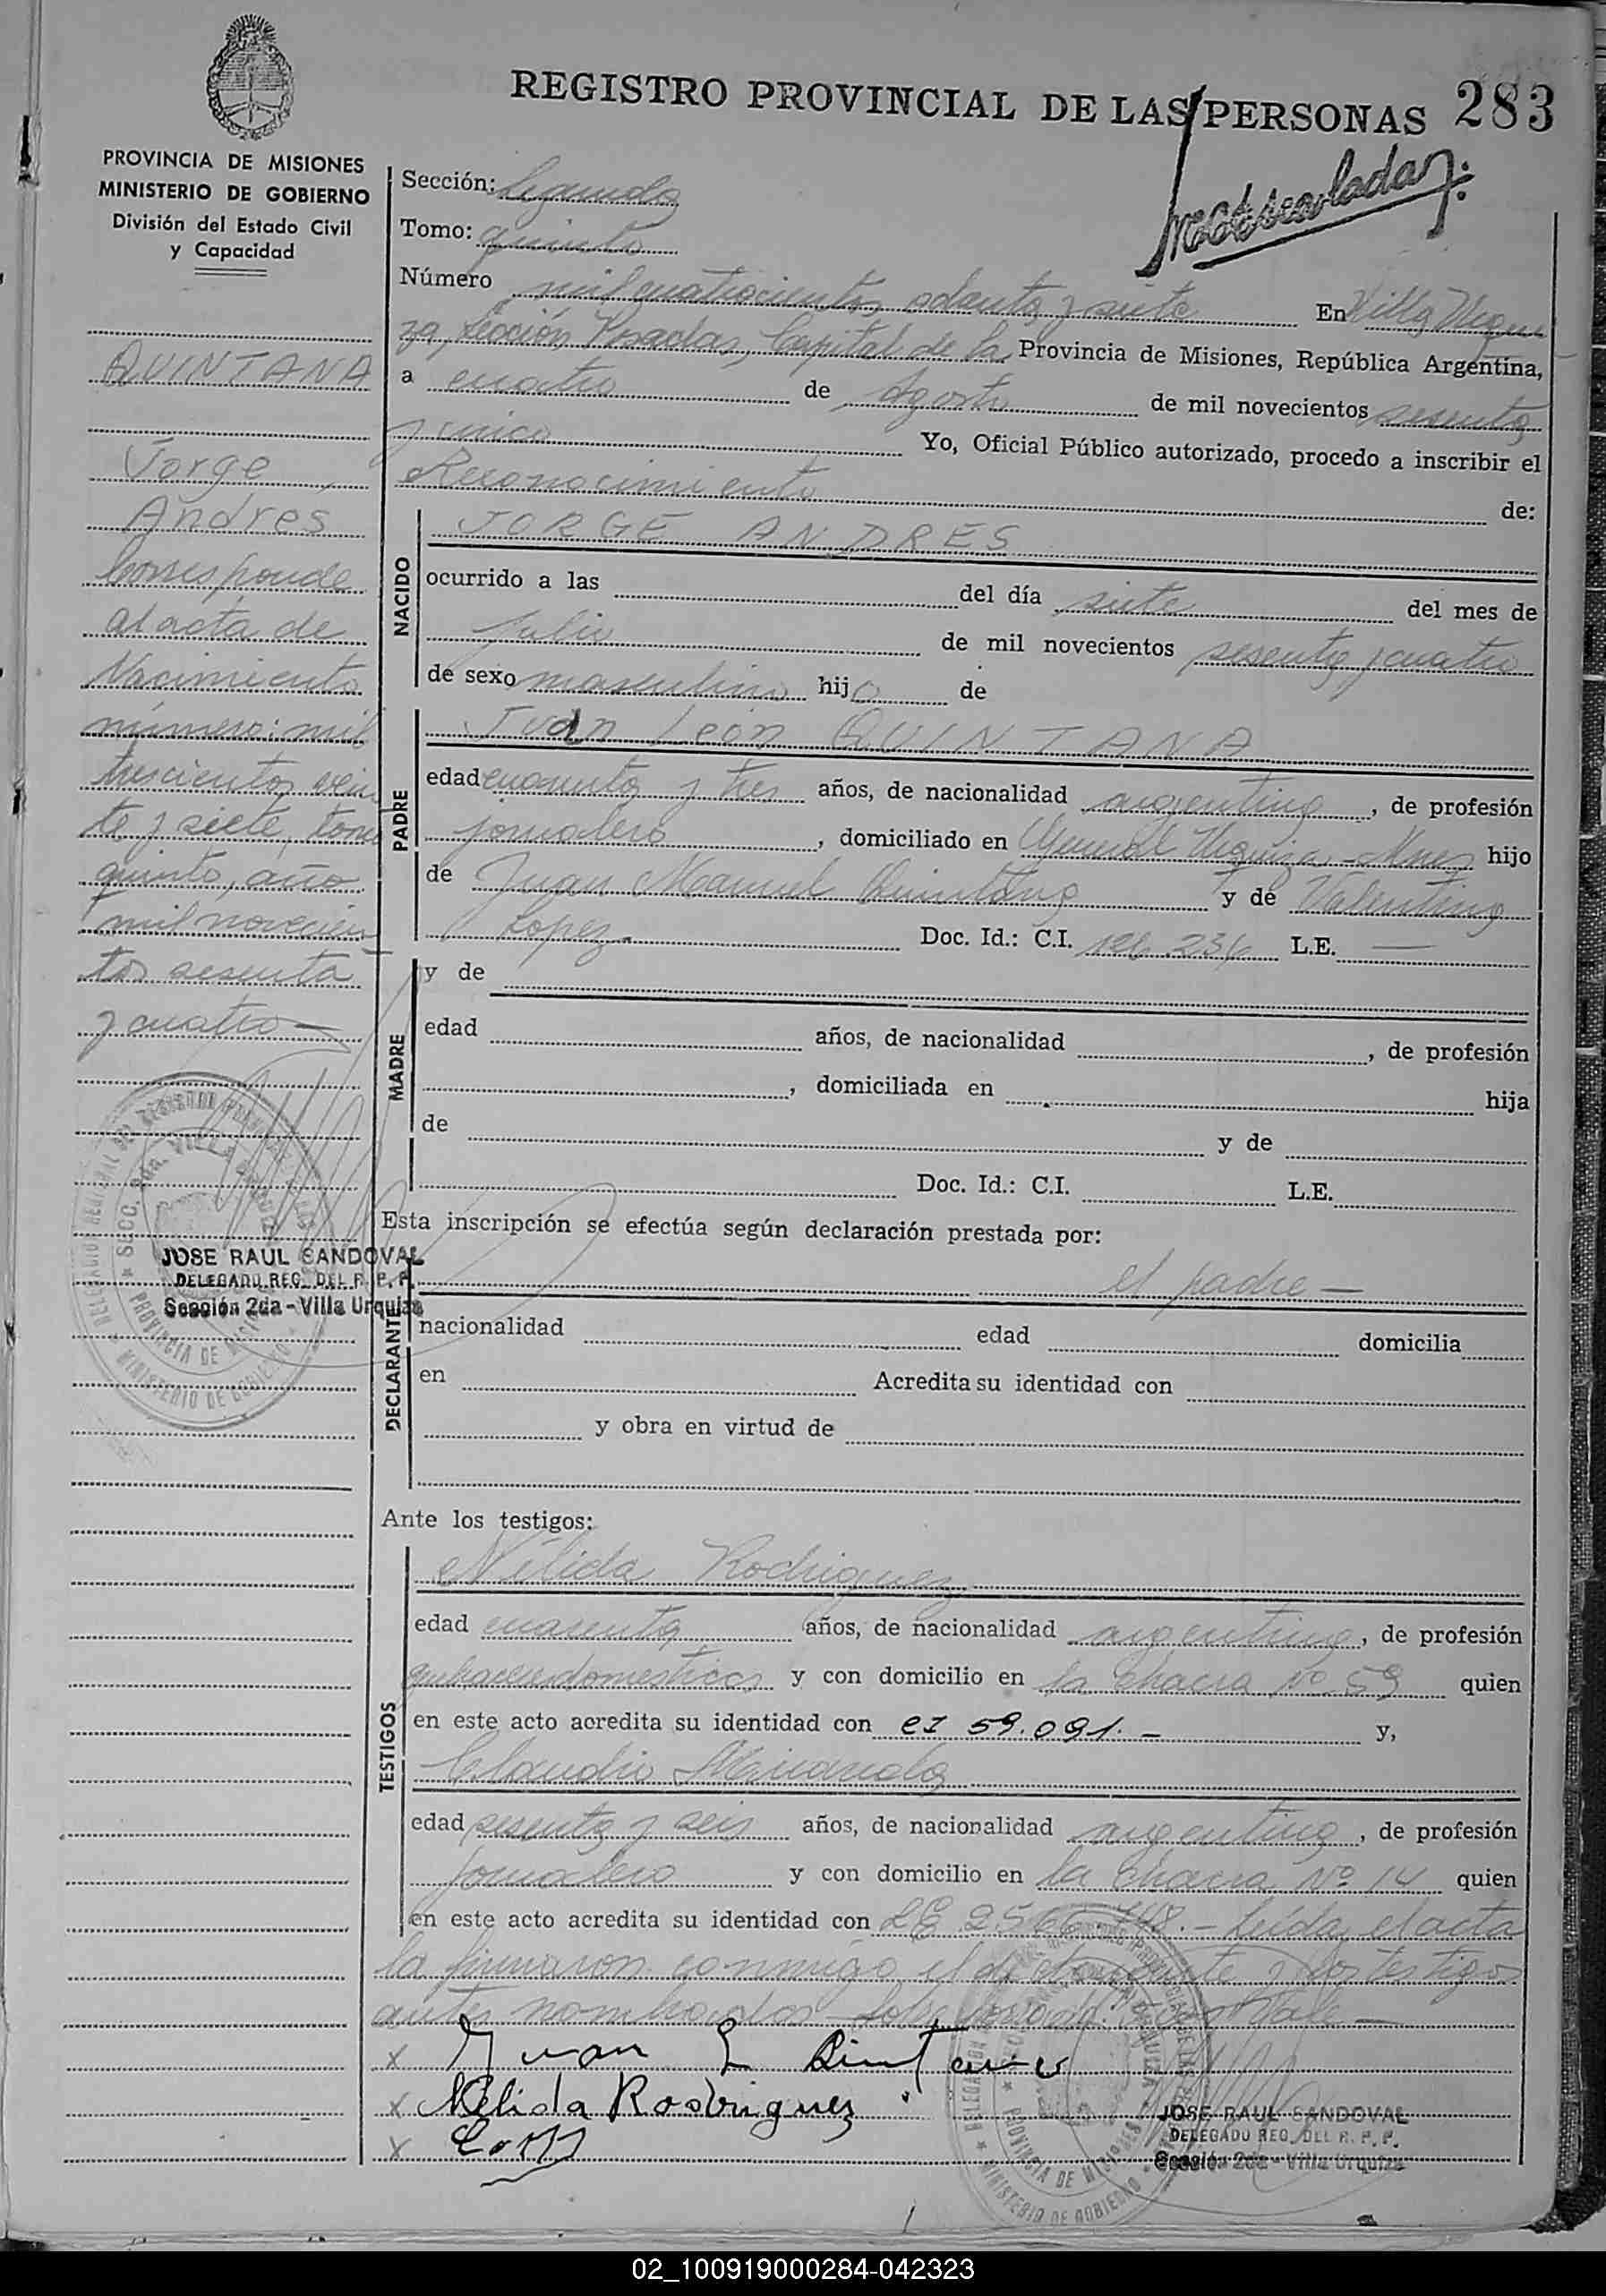 REGISTRO PROVINCIAL DE LAS PERSONAS 283
PROVINCIA DE MISIONES
MINISTERIO DE GOBIERNO
División del Estado Civil
y Capacidad
QUINTANA
Jorge,
Andres
Corresponde
al acta de
Nacimiento
número: mil
trescientos vein
te y siete, tomo
quinto, año
mil novecien
tos sesenta
y cuatro —
JOSE RAUL SANDOVAL
DELEGADO REG. DEL R. P. P.
Sección 2da - Villa Urquiza
Sección: Segunda
Tomo: quinto
Número mil cuatrocientos ochenta y siete En Villa Urqui
za, Sección Posadas, Capital de la Provincia de Misiones, República Argentina,
a cuatro de Agosto de mil novecientos sesenta
y cinco Yo, Oficial Público autorizado, procedo a inscribir el
Reconocimiento de:
NACIDO
JORGE ANDRES
ocurrido a las del día siete del mes de
Julio de mil novecientos sesenta y cuatro
de sexo masculino hijo de
PADRE
Juan León QUINTANA
edad cuarenta y tres años, de nacionalidad argentina, de profesión
jornalero, domiciliado en General Urquiza - Mnes hijo
de Juan Manuel Quintana y de Valentina
Lopez.- Doc. Id.: C.I. L.E. —
MADRE
y de
edad años, de nacionalidad , de profesión
, domiciliada en hija
de y de
Doc. Id.: C.I. L.E.
Esta inscripción se efectúa según declaración prestada por:
DECLARANTE
el padre —
nacionalidad edad domicilia
en Acredita su identidad con
y obra en virtud de
Ante los testigos:
TESTIGOS
Nélida Rodriguez
edad cuarenta años, de nacionalidad argentina, de profesión
quehaceres domesticos y con domicilio en la Chacra Nº 59 quien
en este acto acredita su identidad con CI 59.091.- y,
Claudio Miranda
edad sesenta y seis años, de nacionalidad argentina, de profesión
jornalero y con domicilio en la Chacra Nº 14 quien
en este acto acredita su identidad con LE - Leída el acta
la firmaron conmigo el declarante y los testigos
antes nombrados - Sobre Vale —
x Juan L Quintana
x Nélida Rodriguez
x
JOSE RAUL SANDOVAL
DELEGADO REG. DEL R. P. P.
Sección 2da - Villa Urquiza
02_100919000284-042323